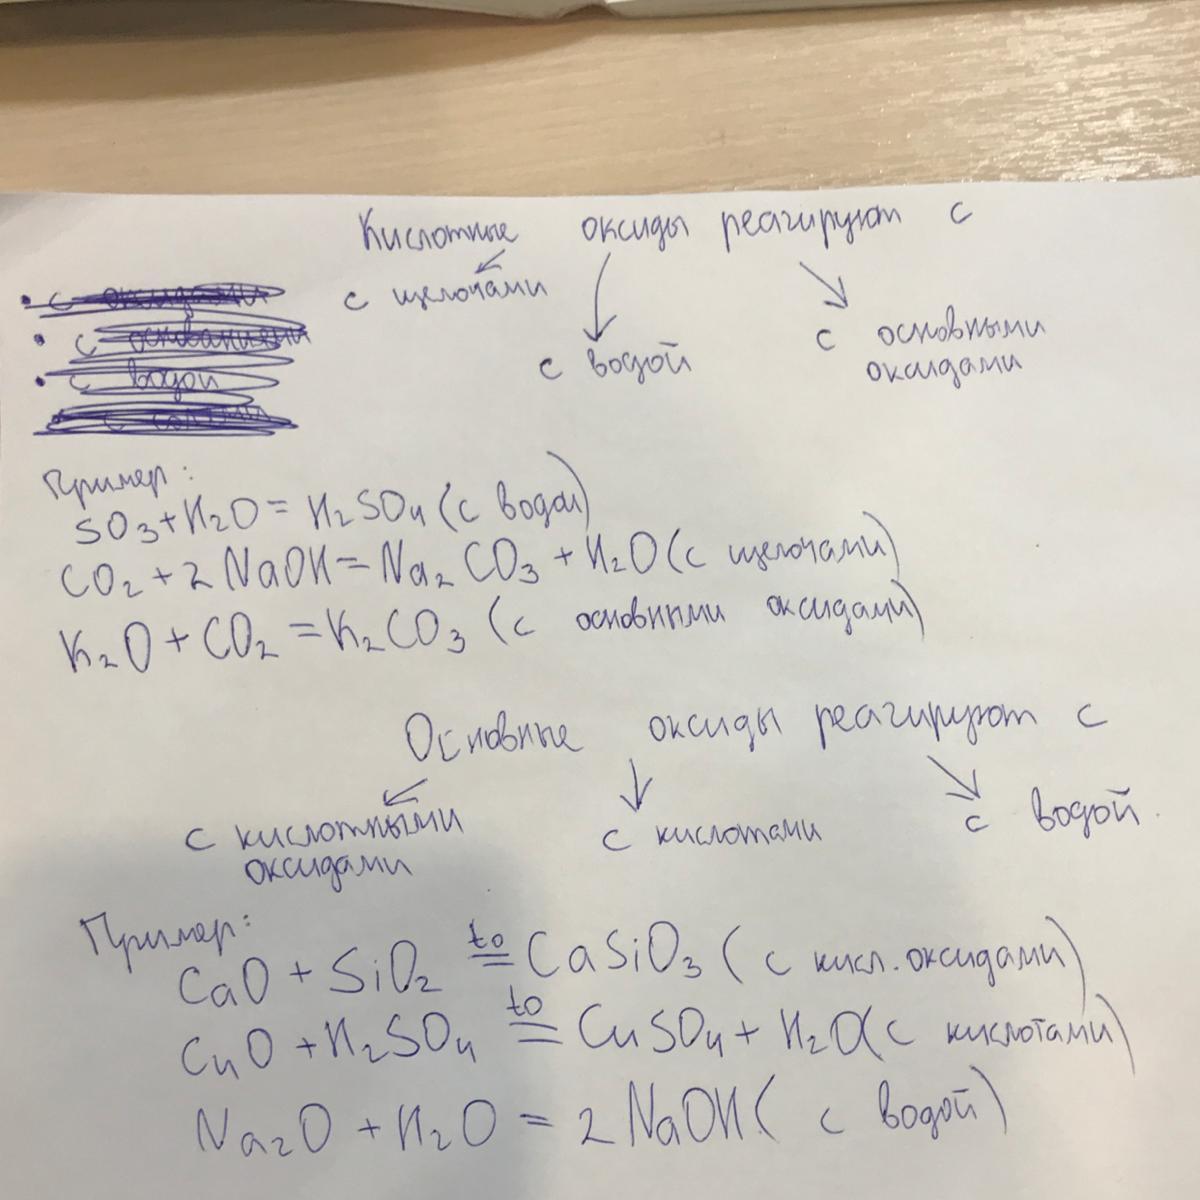 Кислотные оксиды реагируют с
с щелочами
с водой
с основными
оксидами
• с оксидами
• с основаниями
• с водой
Пример:
SO3+H2O=H2SO4 (с водой)
CO2+2NaOH=Na2CO3+H2O (с щелочами)
K2O+CO2=K2CO3 (с основными оксидами)
Основные оксиды реагируют с
с кислотными
оксидами
с кислотами
с водой.
Пример:
CaO+SiO2 =to CaSiO3 (с кисл. оксидами)
CuO+H2SO4 =to CuSO4+H2O (с кислотами)
Na2O+H2O=2NaOH (с водой)